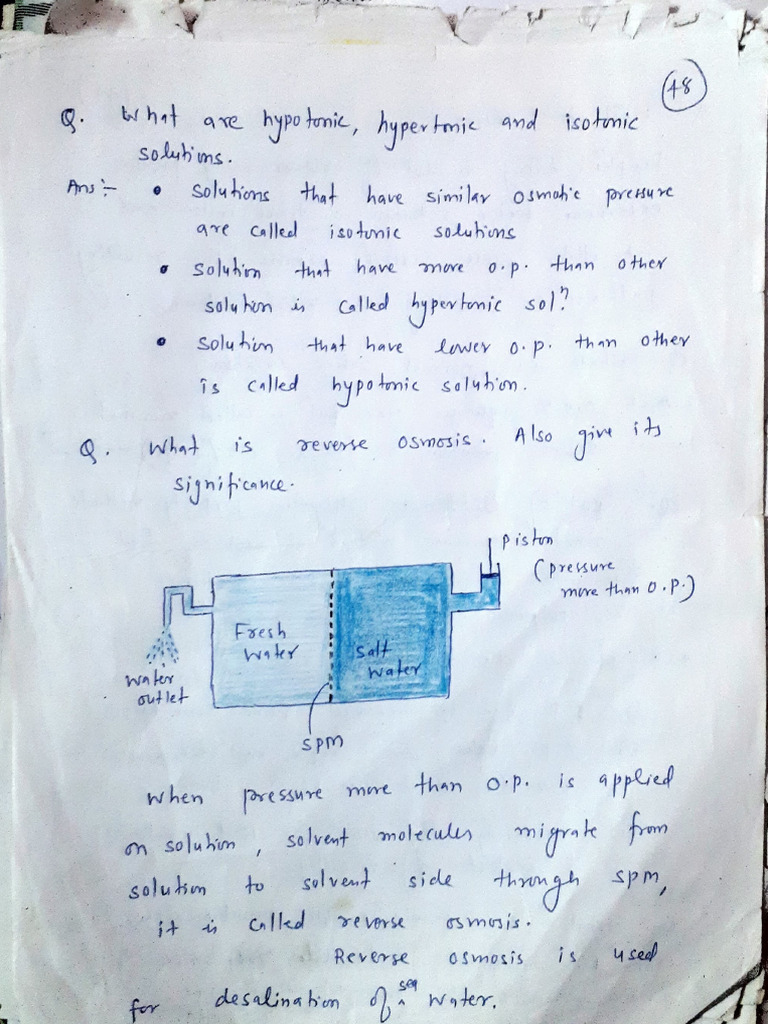 48
Q. What are hypotonic, hypertonic and isotonic
solutions.
Ans :- • solutions that have similar osmotic pressure
are called isotonic solutions
• solution that have more o.p. than other
solution is called hypertonic solⁿ.
• solution that have lower o.p. than other
is called hypotonic solution.
Q. What is reverse osmosis. Also give its
significance.
piston
(pressure
more than o.p.)
Fresh
water
Salt
water
water
outlet
spm
When pressure more than o.p. is applied
on solution, solvent molecules migrate from
solution to solvent side through spm,
it is called reverse osmosis.
Reverse osmosis is used
for desalination of sea water.